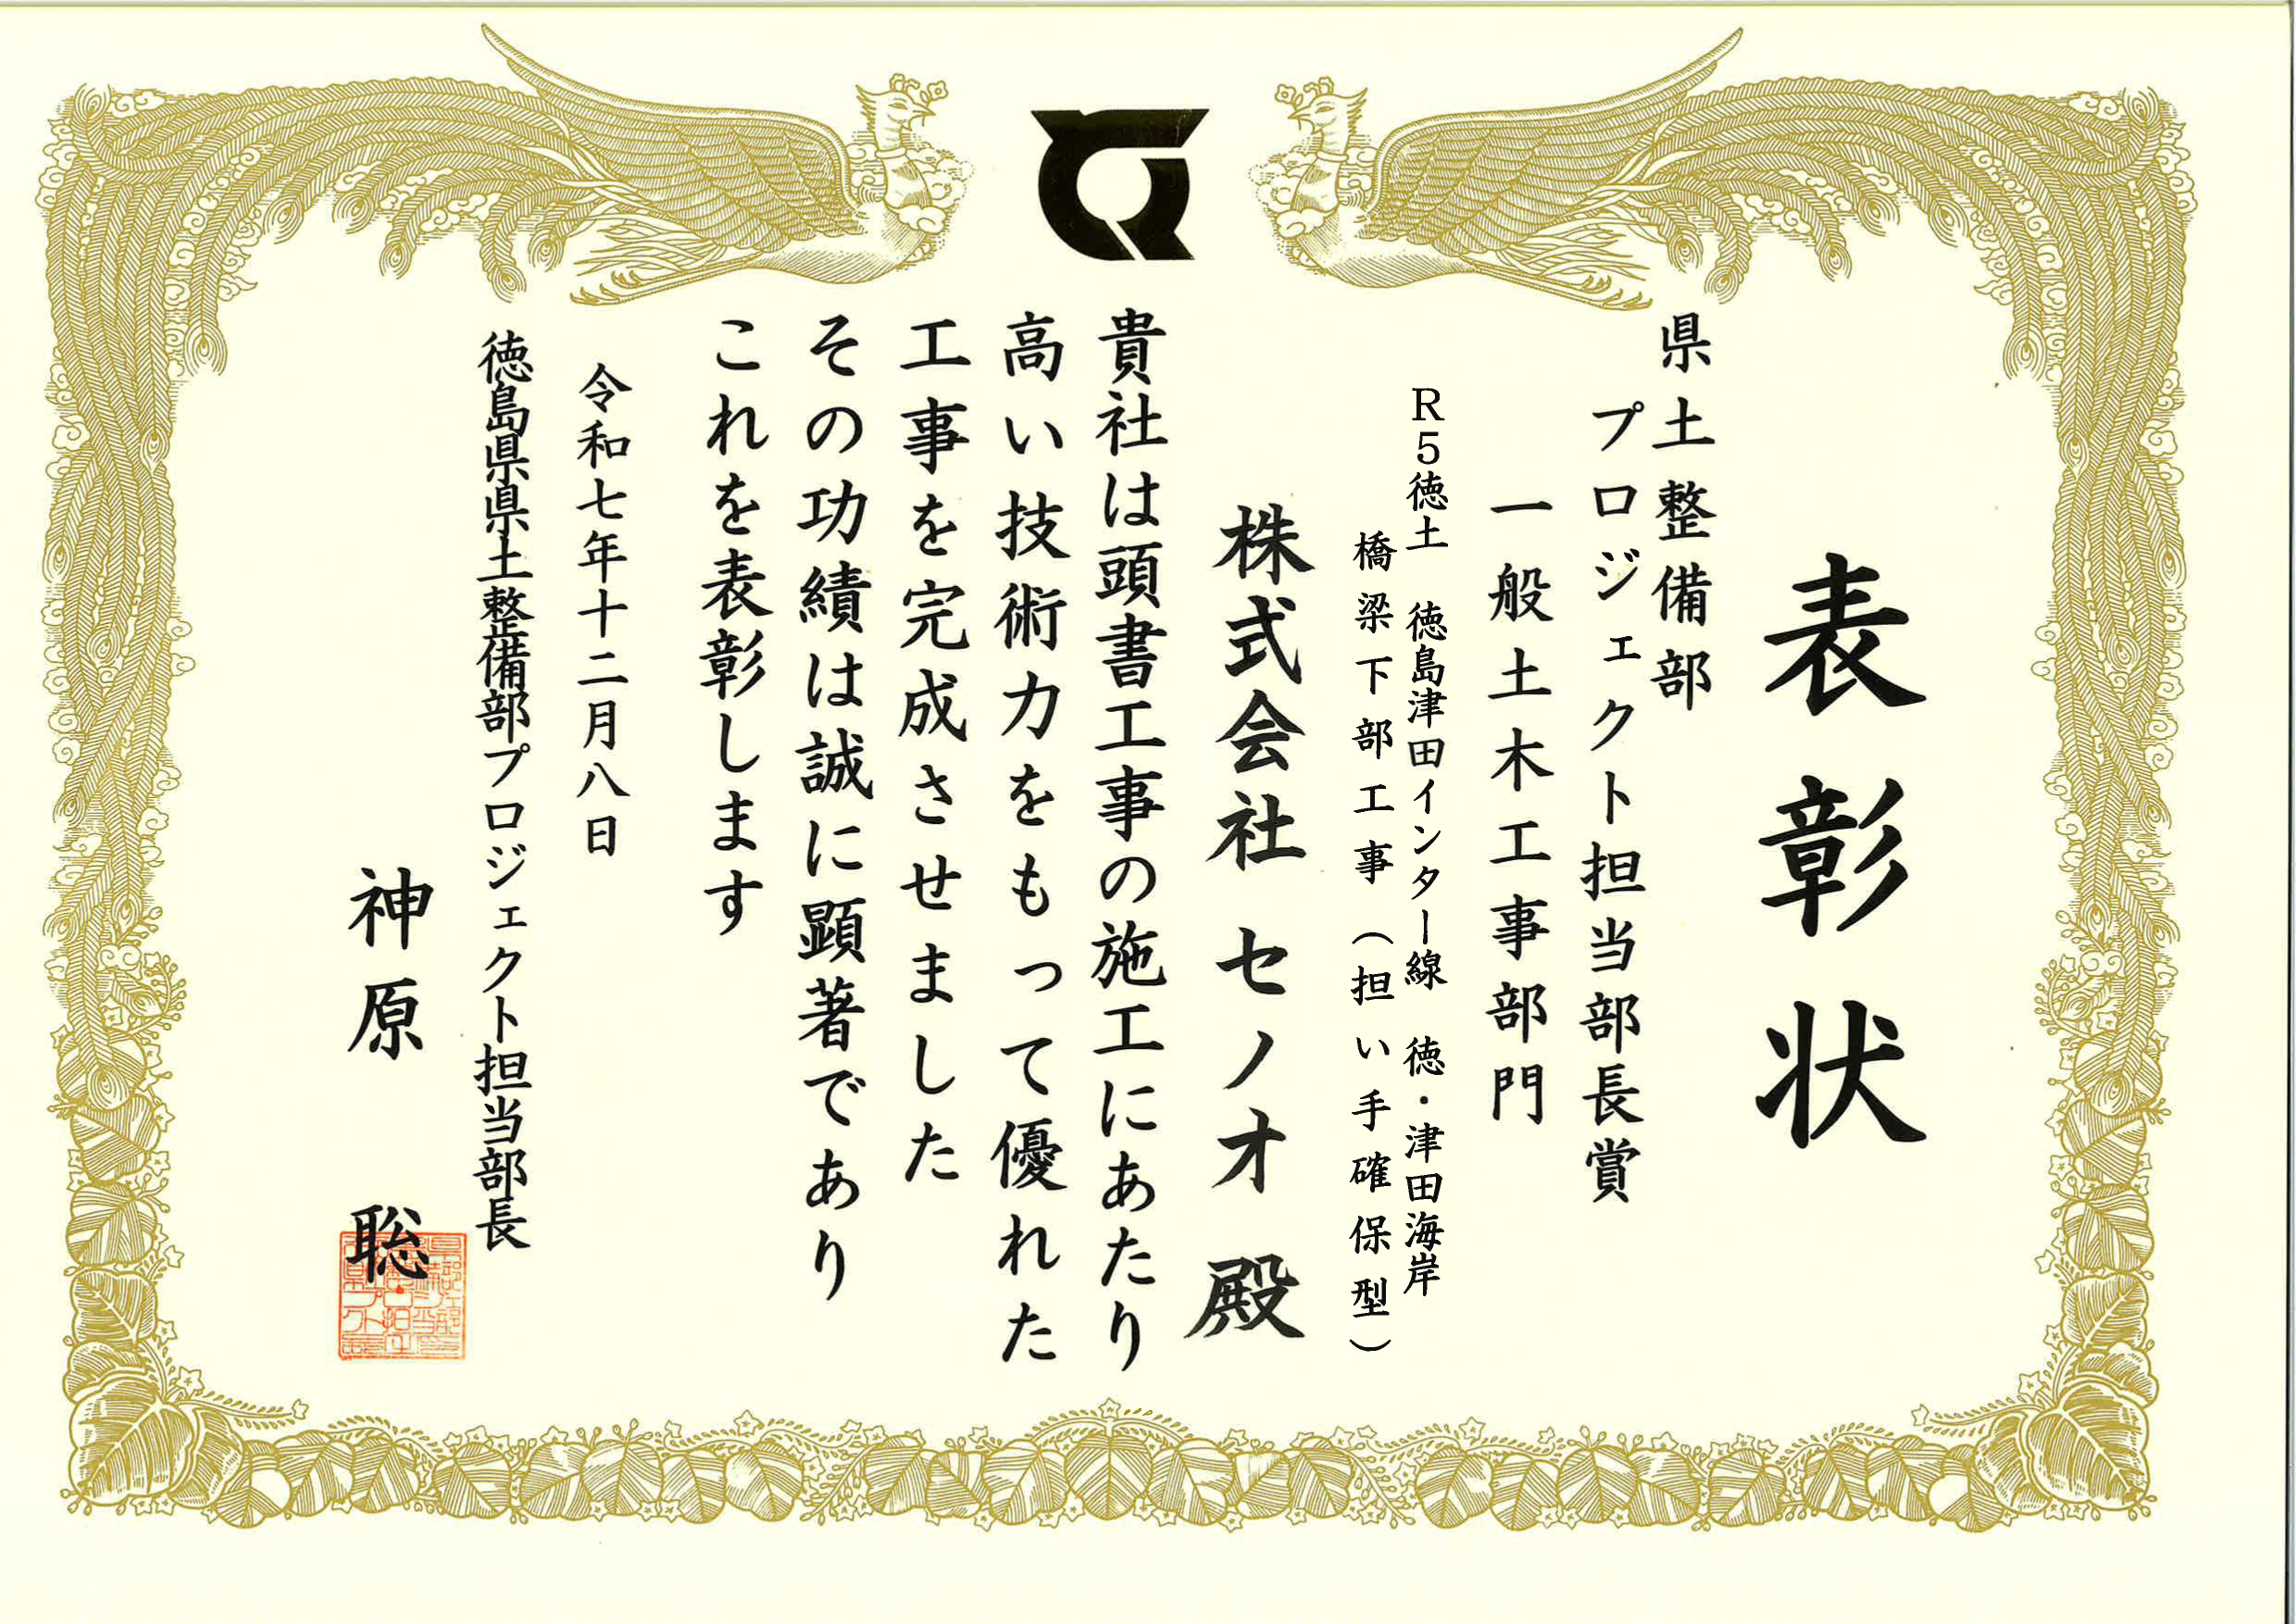 表彰状
県土整備部
プロジェクト担当部長賞
一般土木工事部門
R5徳土　徳島津田インター線　徳・津田海岸
橋梁下部工事（担い手確保型）
株式会社 セノオ 殿
貴社は頭書工事の施工にあたり
高い技術力をもって優れた
工事を完成させました
その功績は誠に顕著であり
これを表彰します
令和七年十二月八日
徳島県県土整備部プロジェクト担当部長
神原　聡